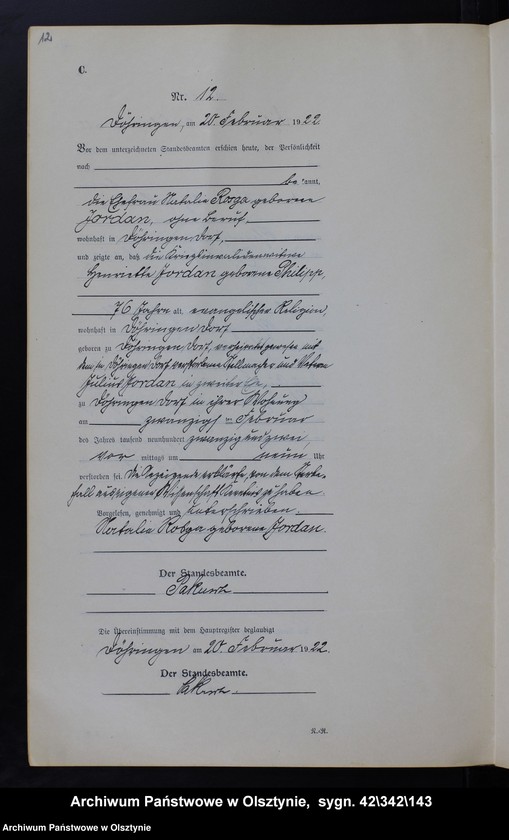 12
C.
Nr. 12.
Döhringen, am 20. Februar 1922
Vor dem unterzeichneten Standesbeamten erschien heute, der Persönlichkeit
nach
be kannt,
die Ehefrau Natalie geborene
Jordan, ohne Beruf,
wohnhaft in Döhringen Dorf,
und zeigte an, daß die Kriegsinvalidenwitwe
Henriette Jordan geborene Philipp,
76 Jahre alt, evangelischer Religion,
wohnhaft in Döhringen Dorf
geboren zu Döhringen Dorf, verheiratet gewesen mit
dem in Döhringen Dorf verstorbenen Stellmacher und
Julius Jordan in zweiter Ehe,
zu Döhringen Dorf in ihrer Wohnung
am zwanzigsten Februar
des Jahres tausend neunhundert zwanzig und zwei
vor mittags um neun Uhr
verstorben sei. Die Anzeigende erklärte, von dem Sterbe-
fall aus eigener Wissenschaft Kenntnis zu haben.
Vorgelesen, genehmigt und unterschrieben.
Natalie geborene Jordan.
Der Standesbeamte.
Die Übereinstimmung mit dem Hauptregister beglaubigt
Döhringen am 20. Februar 1922.
Der Standesbeamte.
K.-R.
Archiwum Państwowe w Olsztynie, sygn. 42\342\143
Archiwum Państwowe w Olsztynie